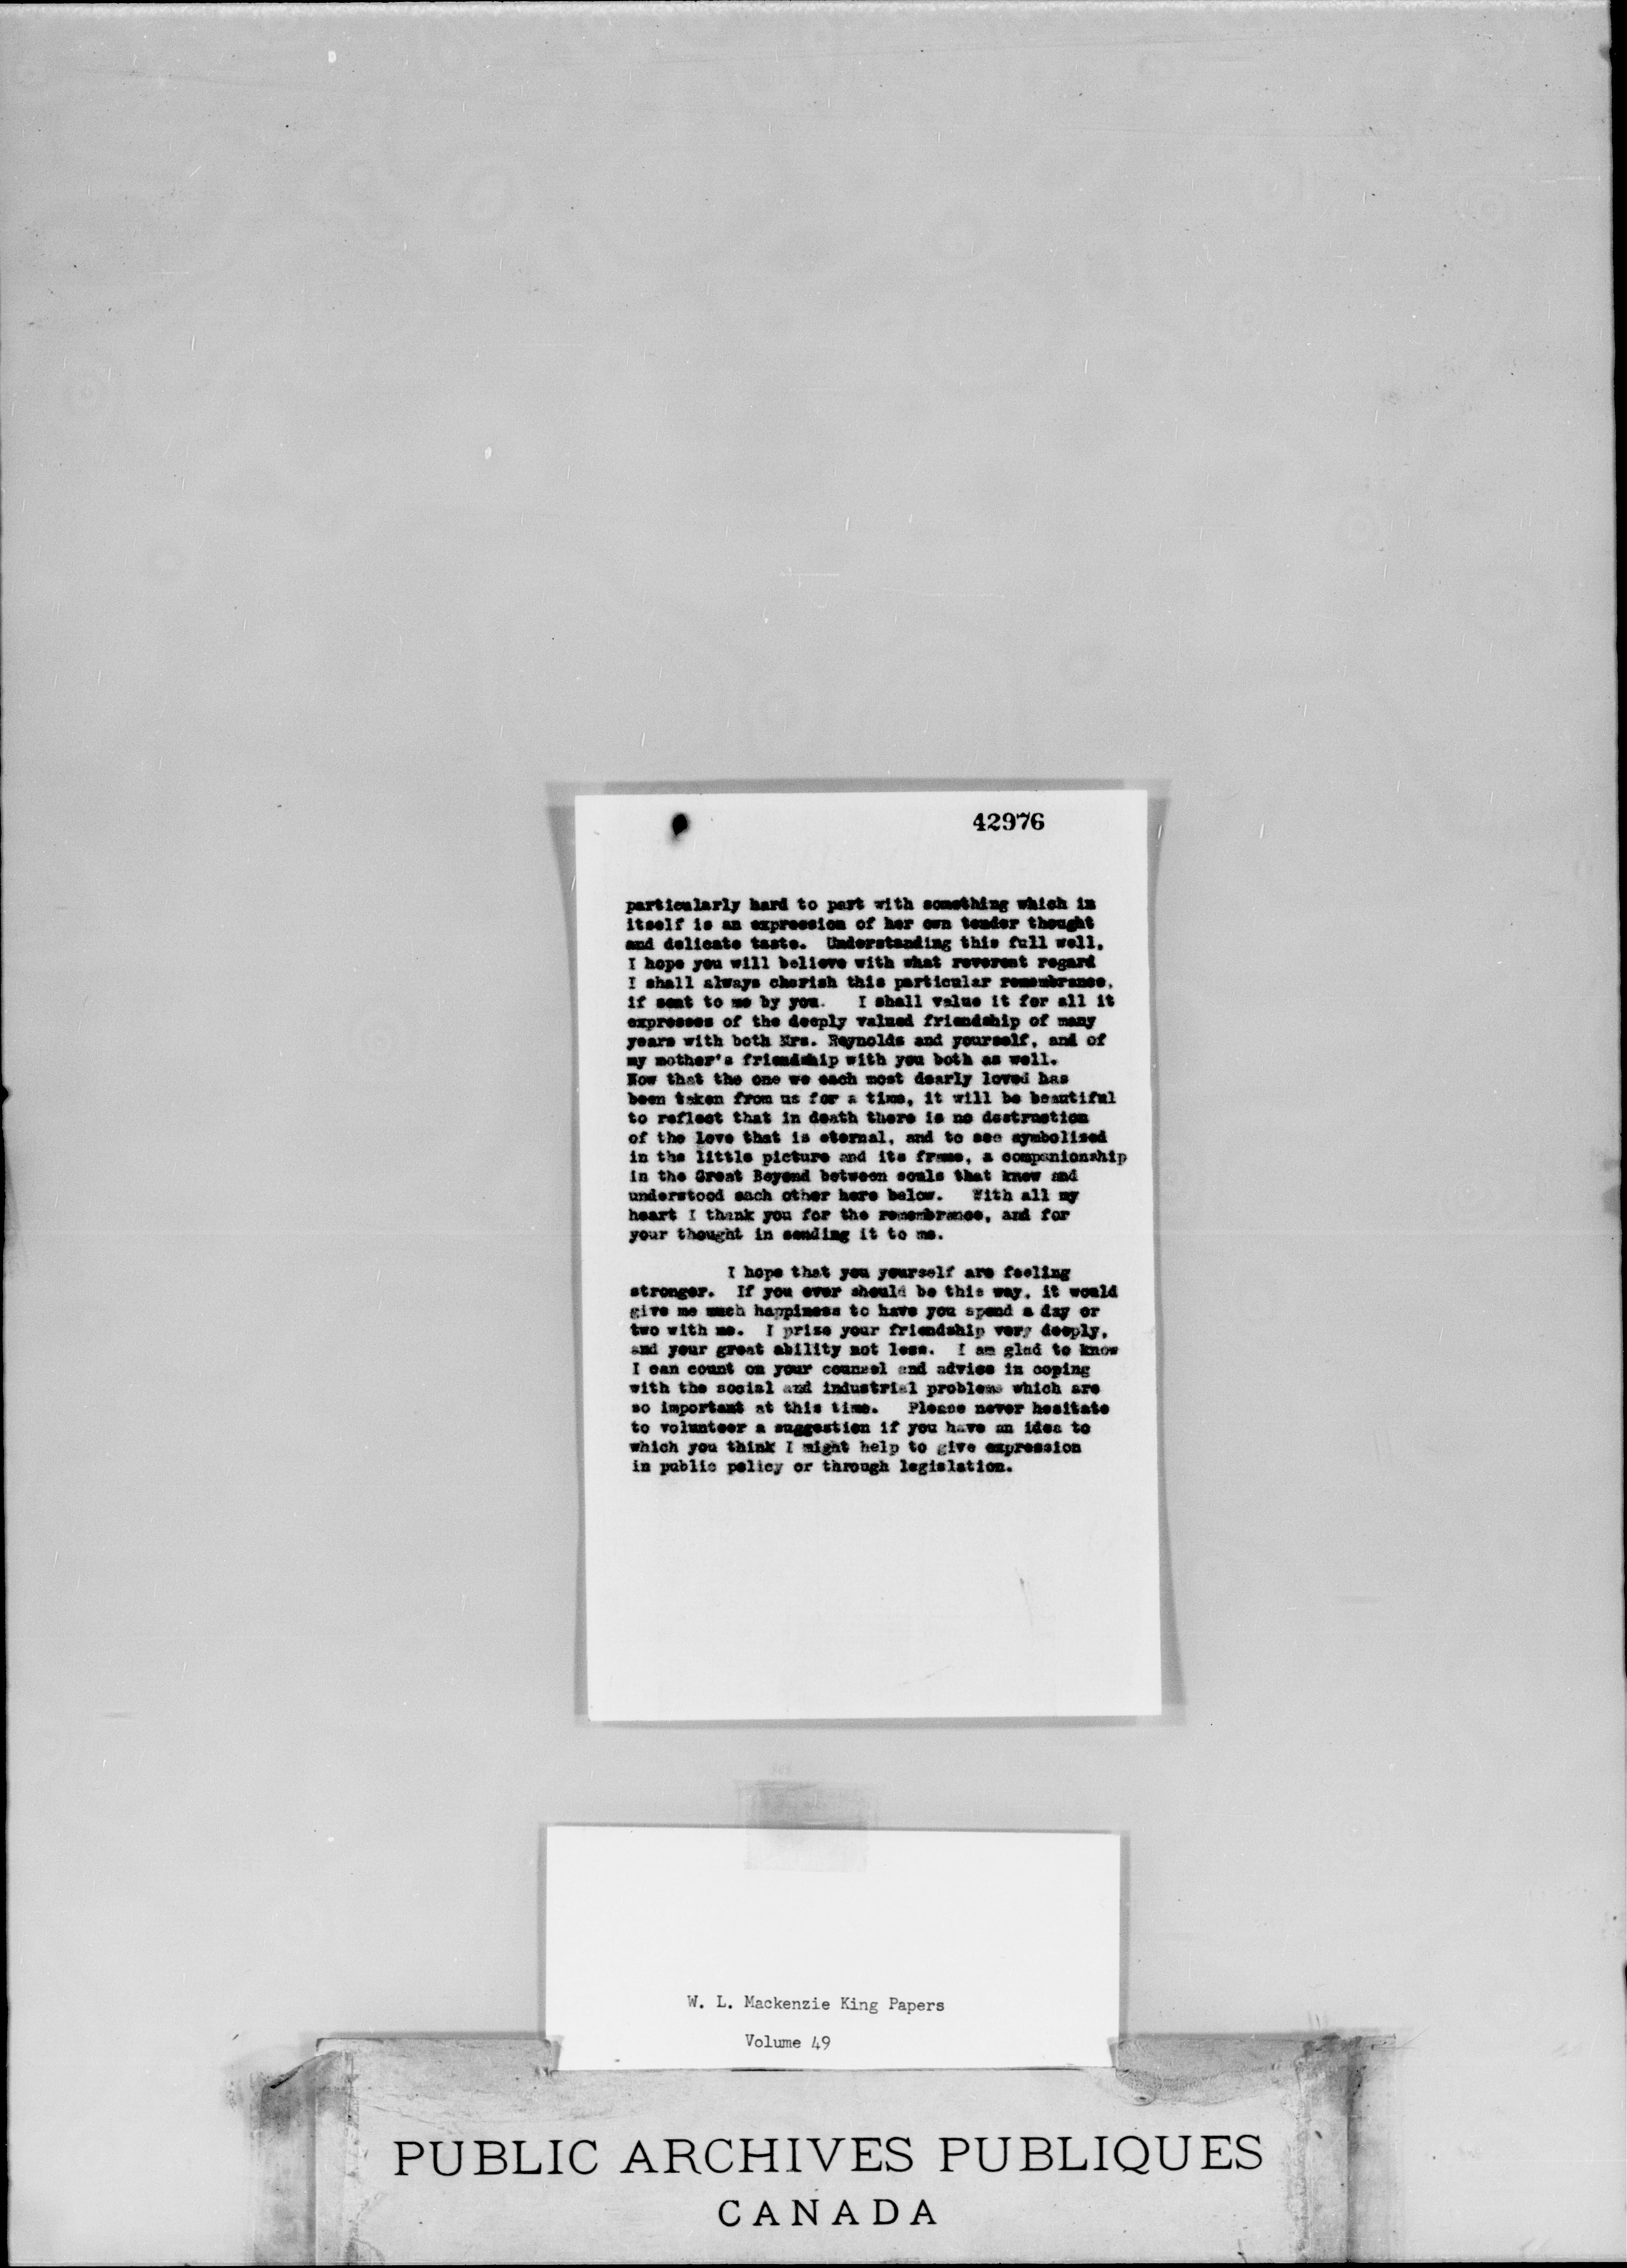 42976
particularly hard to part with something which in
itself is an expression of her own tender thought
and delicate taste. Understanding this full well,
I hope you will believe with what reverent regard
I shall always cherish this particular remembrance,
if sent to me by you. I shall value it for all it
expresses of the deeply valued friendship of many
years with both Mrs. Reynolds and yourself, and of
my mother's friendship with you both as well.
Now that the one we each most dearly loved has
been taken from us for a time, it will be beautiful
to reflect that in death there is no destruction
of the love that is eternal, and to see symbolized
in the little picture and its frame, a companionship
in the Great Beyond between souls that knew and
understood each other here below. With all my
heart I thank you for the remembrance, and for
your thought in sending it to me.
I hope that you yourself are feeling
stronger. If you ever should be this way, it would
give me much happiness to have you spend a day or
two with me. I prize your friendship very deeply,
and your great ability not less. I am glad to know
I can count on your counsel and advice in coping
with the social and industrial problems which are
so important at this time. Please never hesitate
to volunteer a suggestion if you have an idea to
which you think I might help to give expression
in public policy or through legislation.
W. L. Mackenzie King Papers
Volume 49
PUBLIC ARCHIVES PUBLIQUES
CANADA